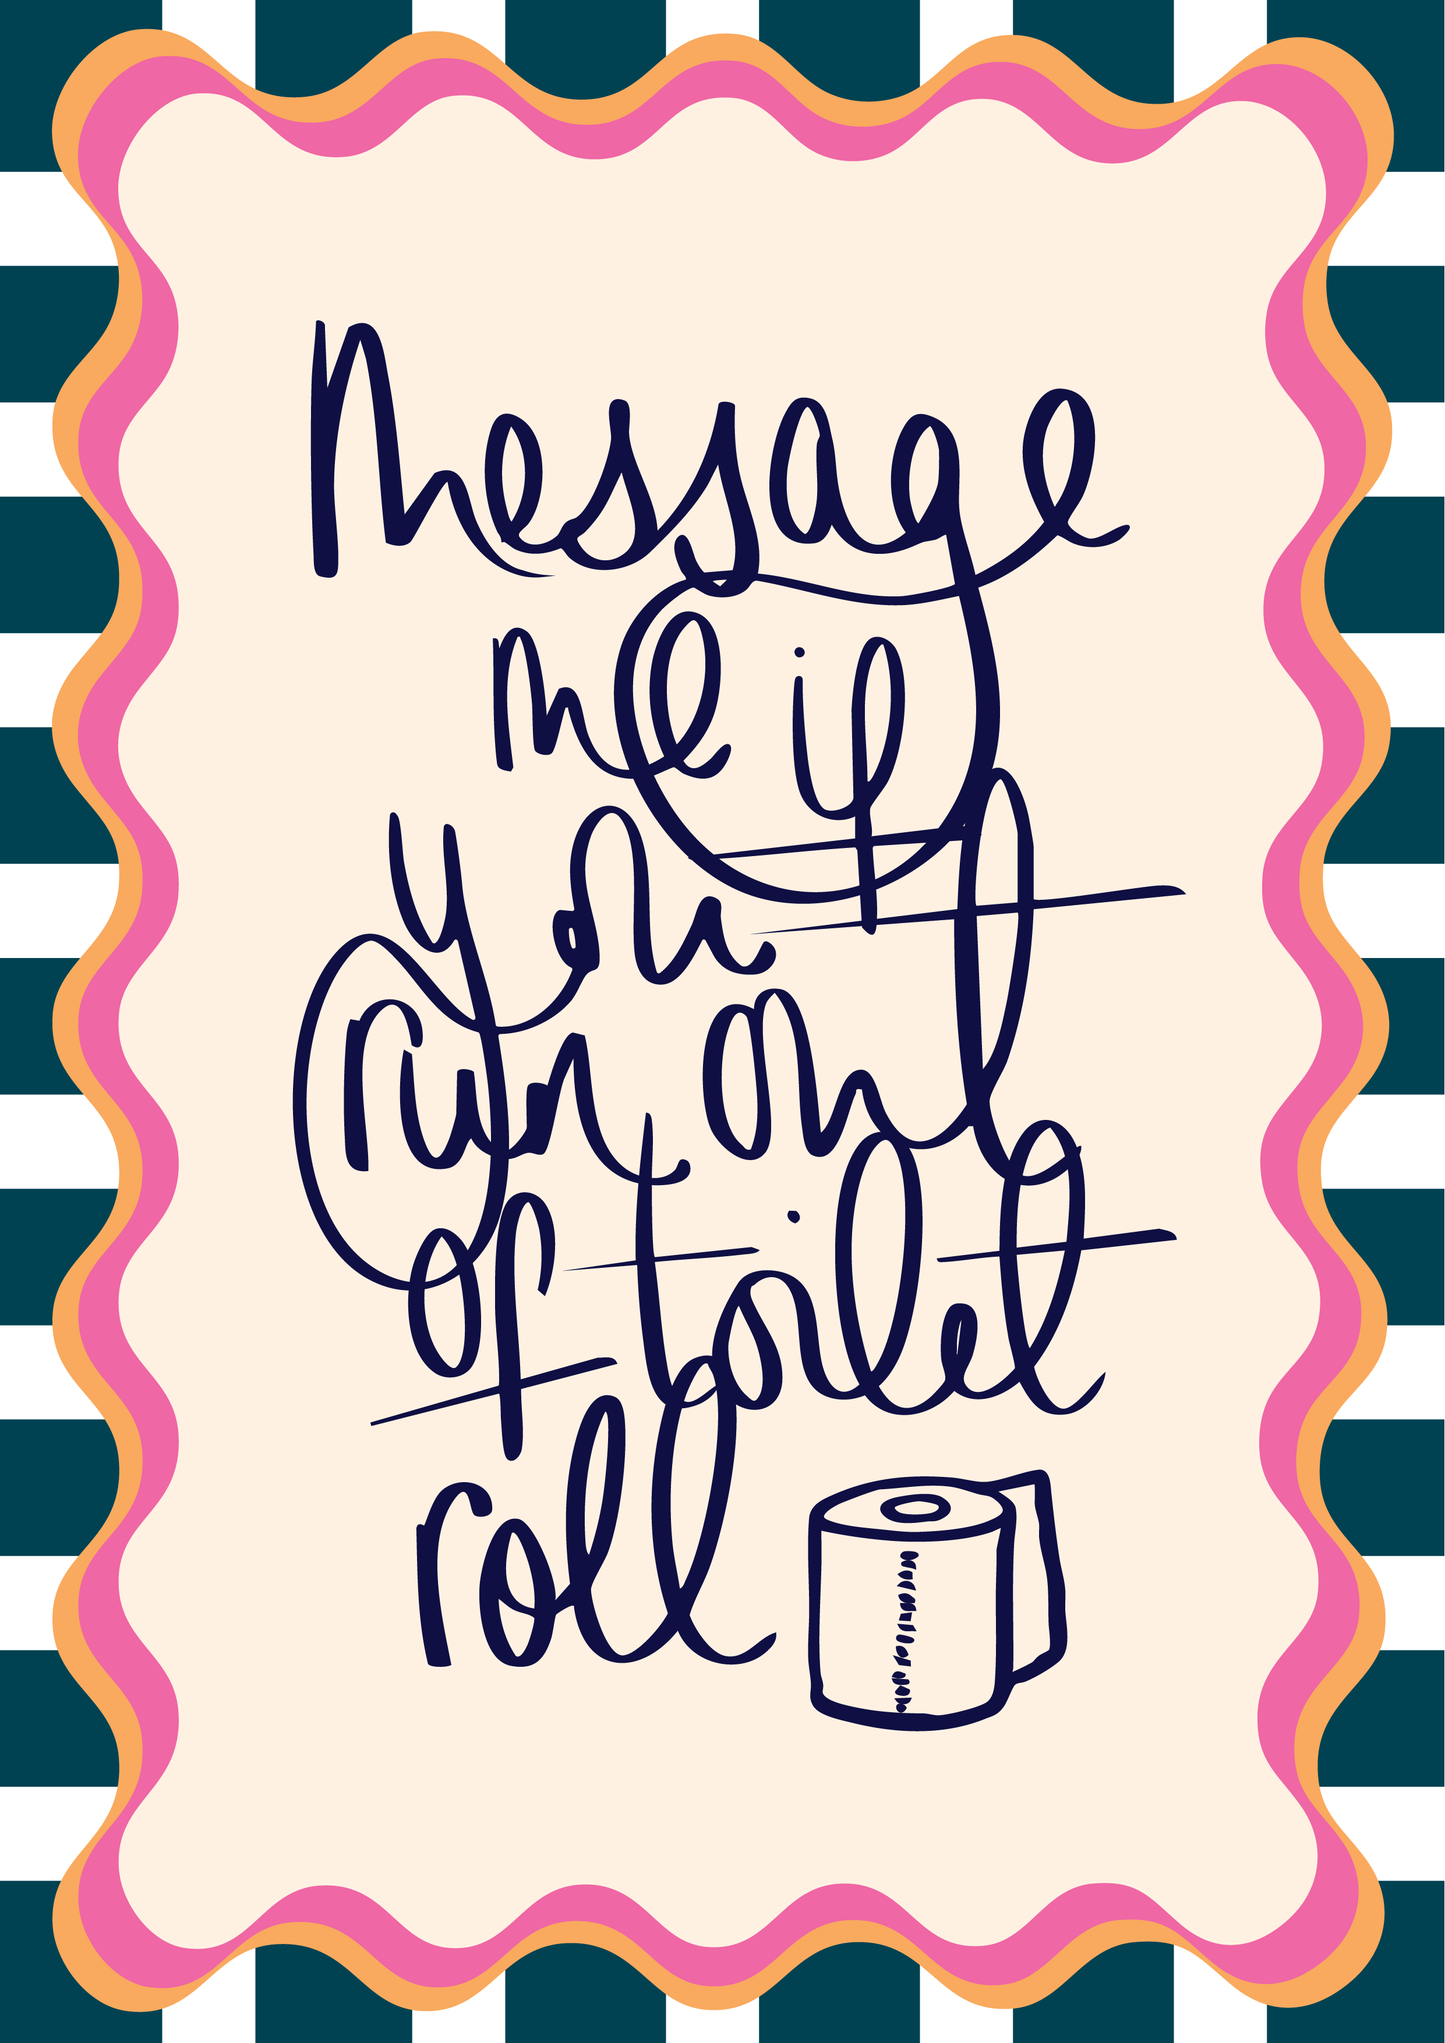 Message
me if
you
run out
of toilet
roll